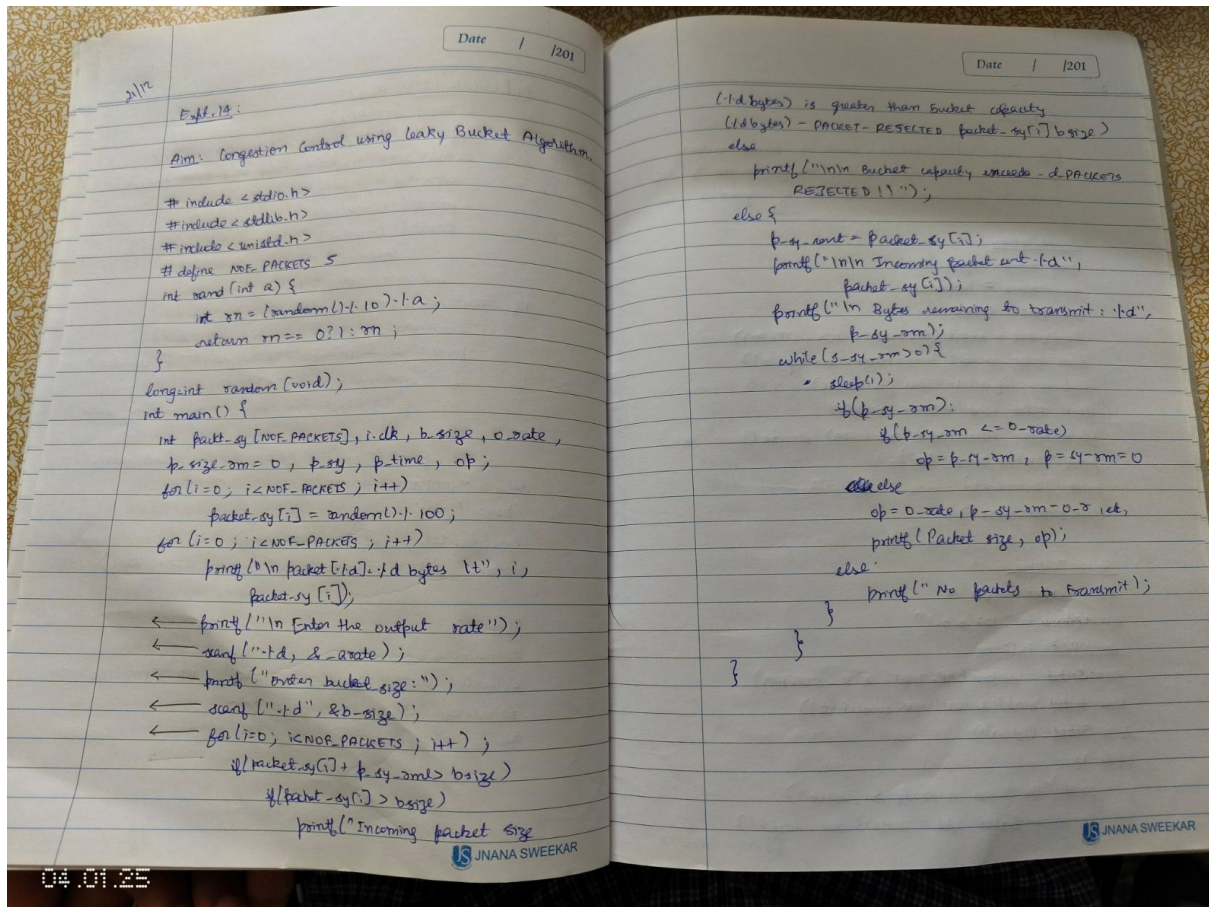 Date / /201
21/12
Expt. 14:
Aim: Congestion Control using Leaky Bucket Algorithm.
# include <stdio.h>
# include <stdlib.h>
# include <unistd.h>
# define NOF_PACKETS 5
int rand(int a) {
int rn = (random() % 10) % a;
return rn == 0? 1 : rn;
}
long int random(void);
int main() {
int packt_sy [NOF_PACKETS], i.clk, b_size, o_rate,
p_size_rm = 0, p_sy, p_time, op;
for(i=0; i<NOF_PACKETS; i++)
packet_sy[i] = random() % 100;
for (i=0; i<NOF_PACKETS; i++)
printf("\n packet[%d]: %d bytes \t", i,
packet_sy[i]);
← printf("\n Enter the output rate");
← scanf("%d, &_orate);
← printf("Enter bucket size:");
← scanf("%d", &b_size);
← for(i=0; i<NOF_PACKETS; i++);
if(packet_sy[i] + p_sy_rm > bsize)
if(packet_sy[i] > bsize)
printf("Incoming packet size
JS JNANA SWEEKAR
Date / /201
(%d bytes) is greater than bucket capacity
(%d bytes) - PACKET-REJECTED packet_sy[i] bsize)
else
printf("\n\n Bucket capacity exceeds -d PACKETS
REJECTED!!");
else {
p_sy_ = packet_sy[i];
printf("\n\n Incoming packet %d",
packet_sy[i]);
printf("\n Bytes remaining to transmit: %d",
p_sy_rm);
while (s_sy_rm>0){
sleep(1);
if(p_sy_rm):
if(p_sy_rm <= o_rate)
op = p_sy_rm, p = sy_rm = 0
else
op = o_rate, p_sy_rm -= o_r
printf(Packet size, op);
else
printf("No packets to transmit);
}
}
}
JS JNANA SWEEKAR
04.01.25